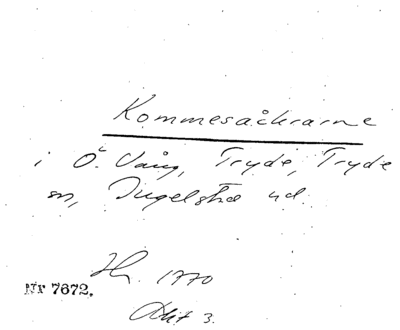 Kommesåkrarne
i Ö. Vång, Tryde, Tryde
sn, Ingelstad hd.
Hy. 1770
Nr 7672.
Akt 3.